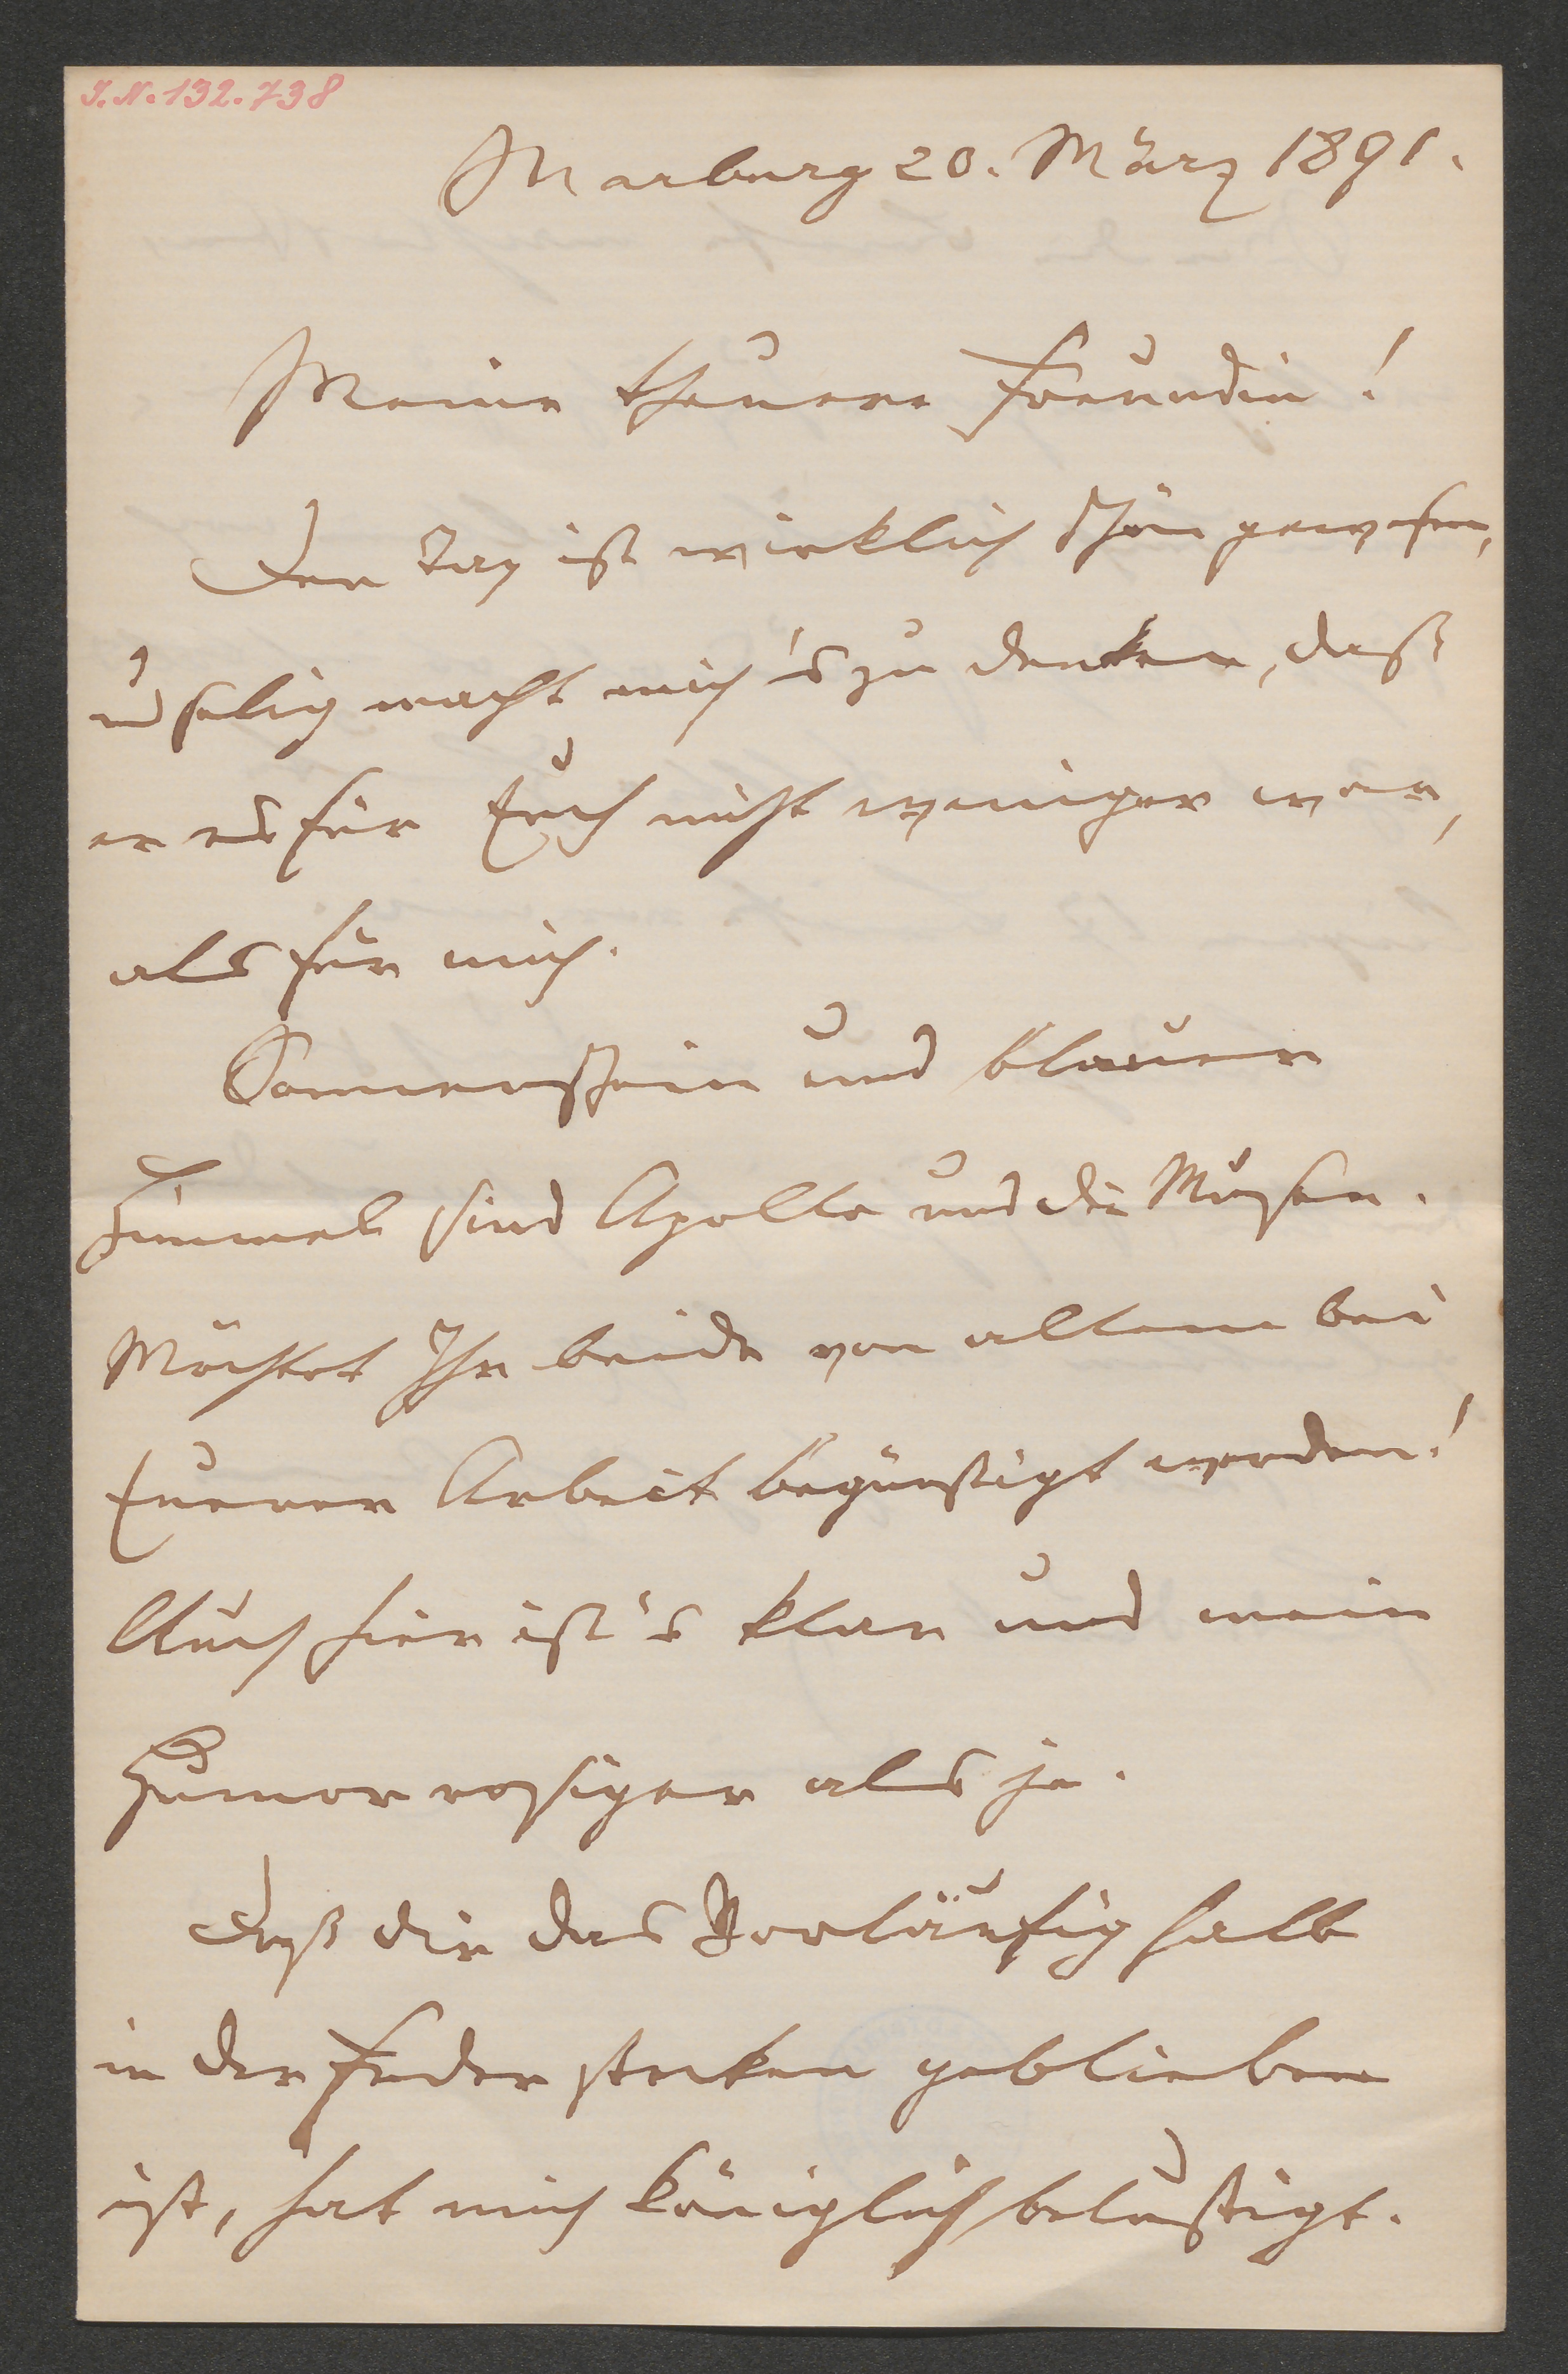 J.N. 132.738
Marburg 20. März 1891.
Meine theuere Freundin!
Der Tag ist wirklich schön gewesen,
u selig macht mich's zu denken, daß
er es für Euch nicht weniger war,
als für mich.
Sonnenschein und blauer
Himmel sind Apollo und die Musen.
Möchtet Ihr beide von allem bei
Euerer Arbeit begünstigt werden!
Auch hier ist's klar und mein
Humor rosiger als je.
Daß dir das Vorläufig halb
in der Feder stecken geblieben
ist, hat mich königlich belustigt.